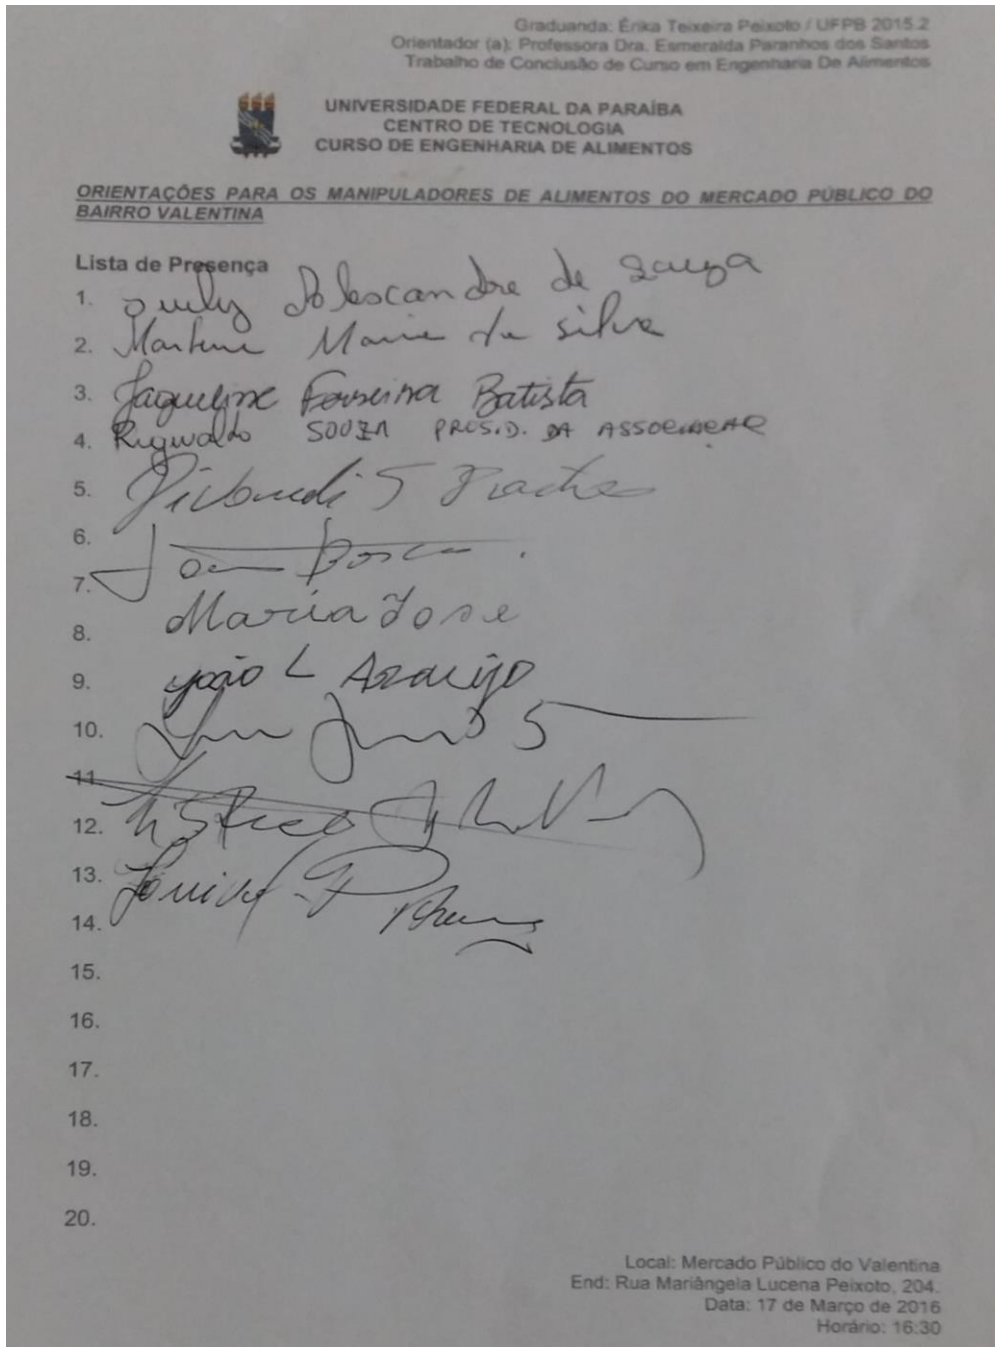 Graduanda: Érika Teixeira Peixoto / UFPB 2015.2
Orientador (a): Professora Dra. Esmeralda Paranhos dos Santos
Trabalho de Conclusão de Curso em Engenharia De Alimentos
UNIVERSIDADE FEDERAL DA PARAÍBA
CENTRO DE TECNOLOGIA
CURSO DE ENGENHARIA DE ALIMENTOS
ORIENTAÇÕES PARA OS MANIPULADORES DE ALIMENTOS DO MERCADO PÚBLICO DO
BAIRRO VALENTINA
Lista de Presença
1. de Souza
2. Maria da Silva
3. Jaqueline Ferreira Batista
4. SOUZA PRESID. DA
5.
6.
7. Bosco
8. Maria Jose
9. João L Araújo
10.
11.
12.
13.
14.
15.
16.
17.
18.
19.
20.
Local: Mercado Público do Valentina
End: Rua Mariângela Lucena Peixoto, 204.
Data: 17 de Março de 2016
Horário: 16:30